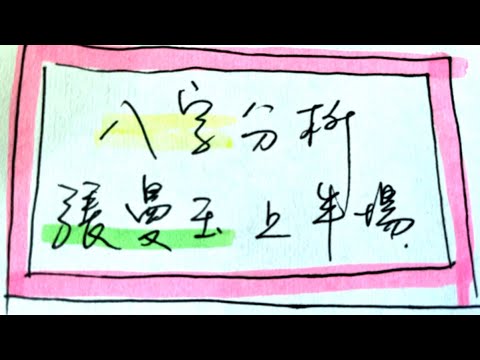 八字分析
張曼玉上半場